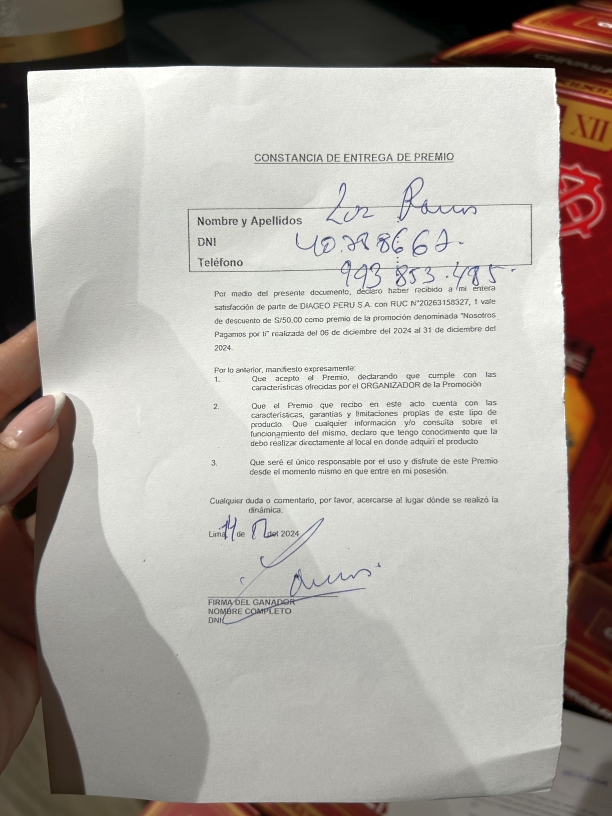 CONSTANCIA DE ENTREGA DE PREMIO
Nombre y Apellidos Luz Ramos
DNI 40788667.
Teléfono 993 853.485.
Por medio del presente documento, declaro haber recibido a mi entera
satisfacción de parte de DIAGEO PERU S.A. con RUC N°20263158327, 1 vale
de descuento de S/50.00 como premio de la promoción denominada "Nosotros
Pagamos por ti" realizada del 06 de diciembre del 2024 al 31 de diciembre del
2024.
Por lo anterior, manifiesto expresamente:
1. Que acepto el Premio, declarando que cumple con las
características ofrecidas por el ORGANIZADOR de la Promoción
2. Que el Premio que recibo en este acto cuenta con las
características, garantías y limitaciones propias de este tipo de
producto. Que cualquier información y/o consulta sobre el
funcionamiento del mismo, declaro que tengo conocimiento que la
debo realizar directamente al local en donde adquirí el producto
3. Que seré el único responsable por el uso y disfrute de este Premio
desde el momento mismo en que entre en mi posesión.
Cualquier duda o comentario, por favor, acercarse al lugar dónde se realizó la
dinámica.
Lima 14 de 12 del 2024
FIRMA DEL GANADOR
NOMBRE COMPLETO
DNI
XII